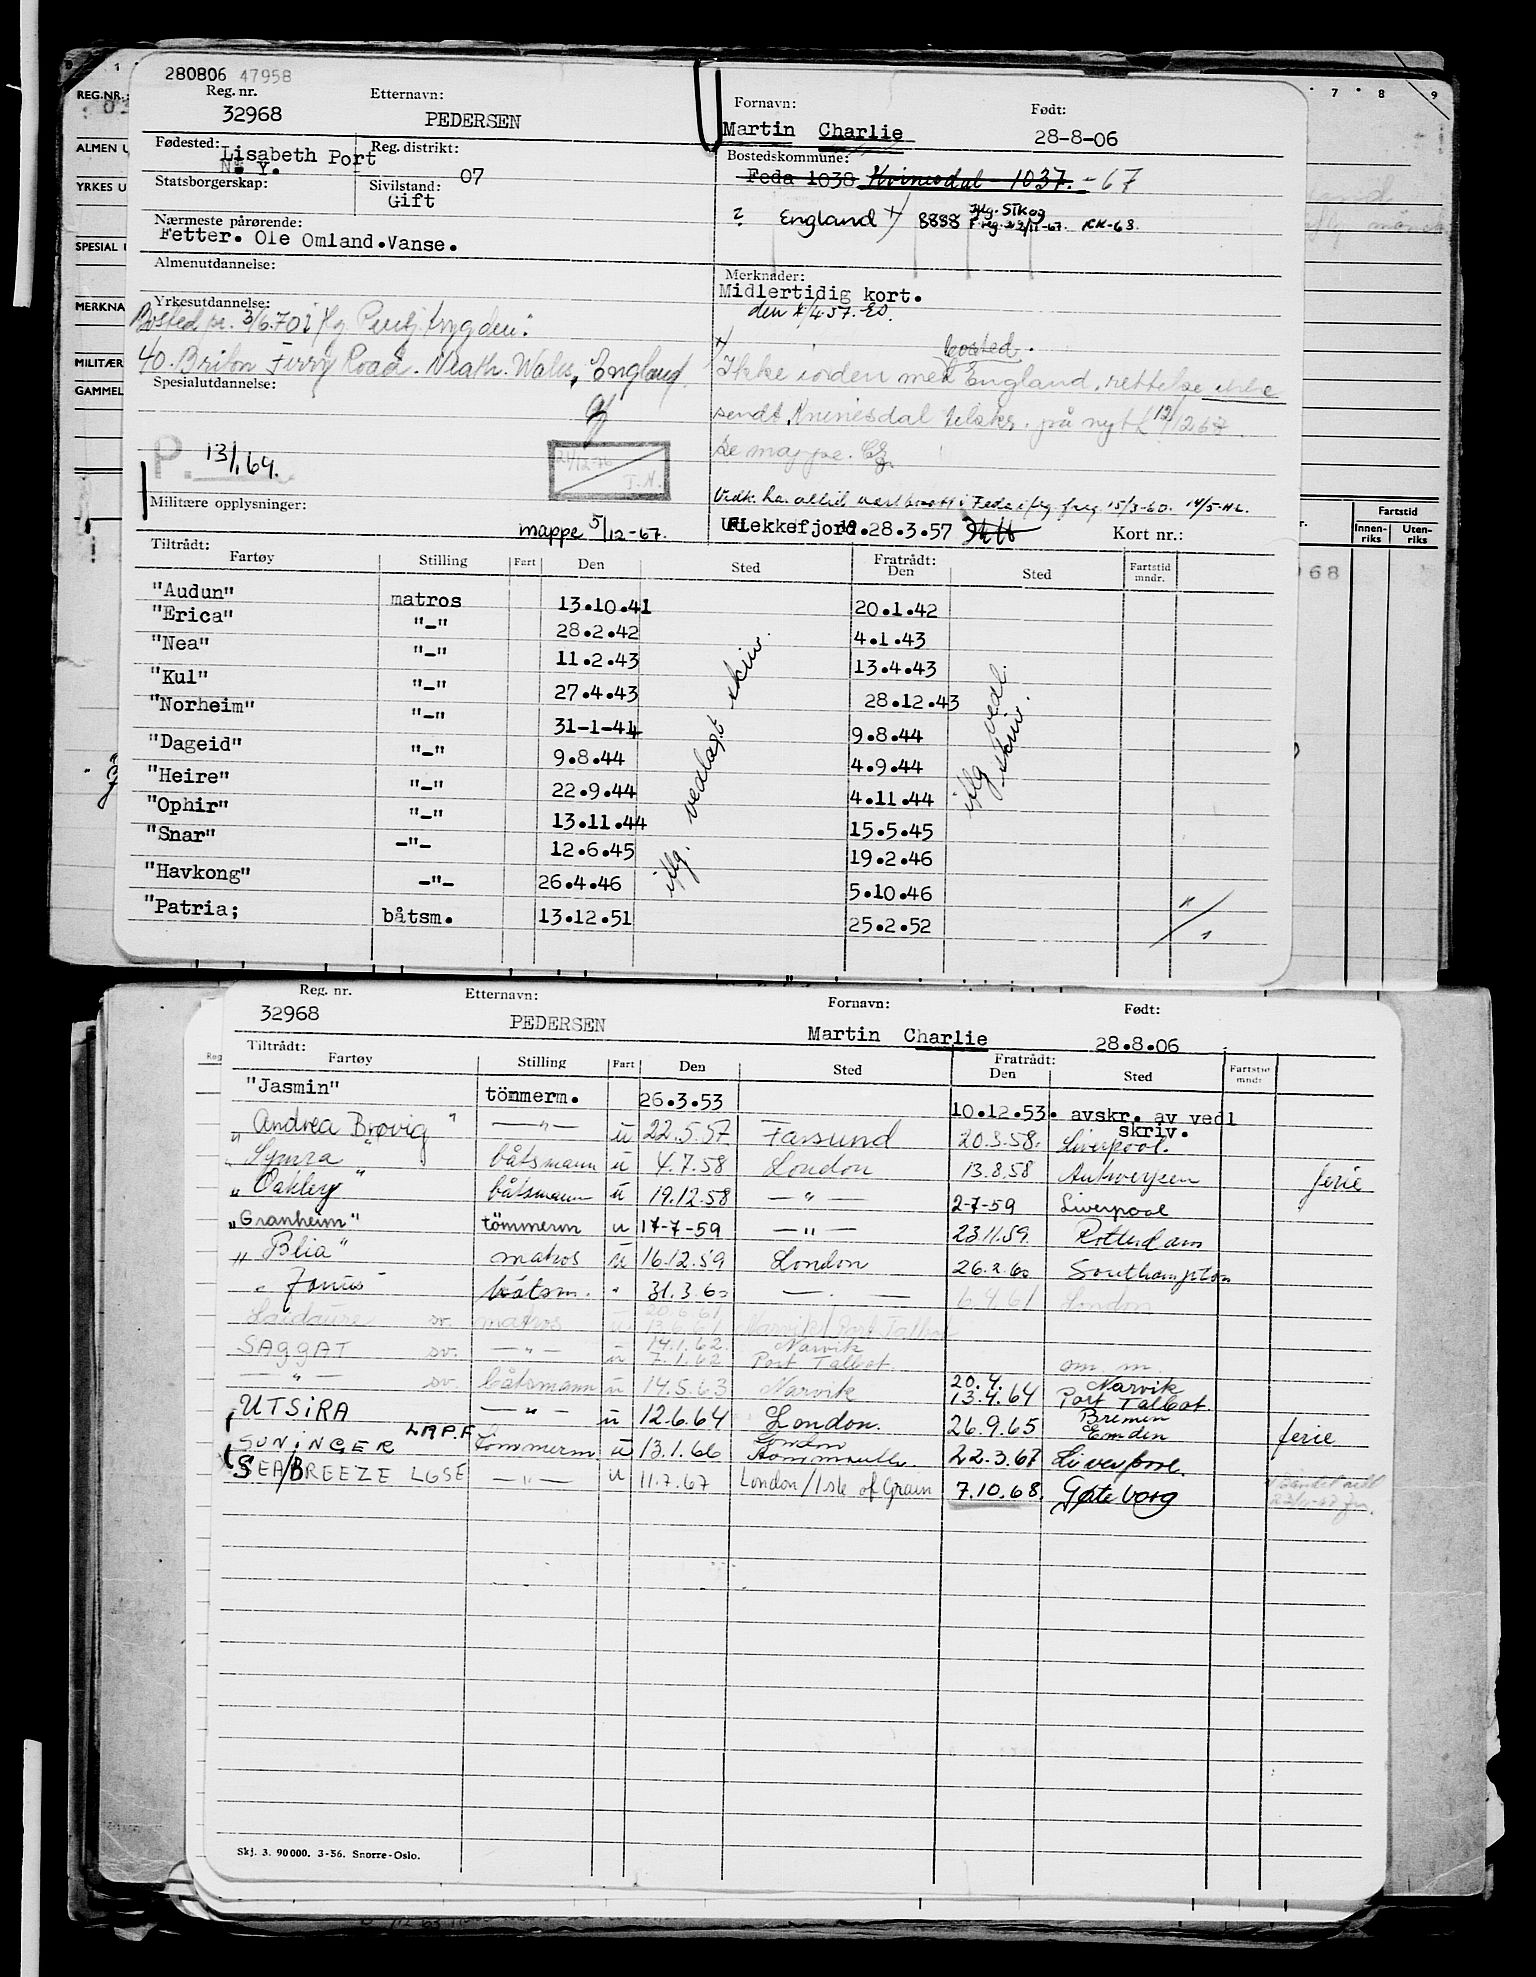 280806 47958
Reg. nr. Etternavn: Fornavn: Født:
32968 PEDERSEN Martin Charlie 28-8-06
Fødested: Lisabeth Port N. Y. Reg. distrikt: 07 Bostedskommune:
Feda 1038 Kvinesdal - 1037. - 67
Statsborgerskap: Sivilstand: Gift
? England x) 8888 iflg. STK og
RK-68.
Nærmeste pårørende:
Fetter. Ole Omland.Vanse.
Almenutdannelse: Merknader:
Midlertidig kort.
Yrkesutdannelse:
Bosted pr. 3/6.70 i flg
40. Briton Ferry Road. Neath. Wales, England
x) bosted.
Ikke iorden med England, rettelse ikke
sendt Kvinesdal på nytt 12/12 67
se mappe.
Spesialutdannelse:
P. 13/1.69.
Militære opplysninger:
Vedk. har alltid vært bosatt i Feda iflg. 15/3-60. 14/5-
mappe 5/12-67.
Flekkefjord.28.3.57 Kort nr.:
Tiltrådt: Fratrådt:
Fartøy Stilling Fart Den Sted Den Sted Fartstid mndr.
"Audun" matros 13.10.41 20.1.42
"Erica" "-" 28.2.42 4.1.43
"Nea" "-" 11.2.43 13.4.43
"Kul" "-" 27.4.43 28.12.43
"Norheim" "-" 31-1-44 9.8.44
"Dageid" "-" 9.8.44 4.9.44
"Heire" "-" 22.9.44 4.11.44
"Ophir" "-" 13.11.44 15.5.45
"Snar" -"- 12.6.45 19.2.46
"Havkong" -"- 26.4.46 5.10.46
"Patria; båtsm. 13.12.51 25.2.52
iflg. vedlagt skriv.
iflg vedl. skriv.
REG.NR.
ALMEN U
YRKES U
SPESIAL U
MERKNA
MILITÆR
GAMMEL
7 8 9
Fartstid
Innen-riks Uten-riks
68
Reg. nr. Etternavn: Fornavn: Født:
32968 PEDERSEN Martin Charlie 28.8.06
Tiltrådt: Fratrådt:
Fartøy Stilling Fart Den Sted Den Sted Fartstid mndr
"Jasmin" tömmerm. 26.3.53 10.12.53. avskr. av vedl skriv.
"Andrea Brøvig" —"— u 22.5.57 Farsund 20.3.58. Liverpool.
"Symra" båtsmann u 4.7.58 London 13.8.58 Antwerpen ferie
"Oakley" båtsmann u 19.12.58 —"— 2-7-59 Liverpool
"Granheim" tömmerm u 17-7-59 —"— 23.11.59. Rotterdam
"Blia" matros u 16.12.59 London 26.2.60 Southampton
"Janus" båtsm. " 31.3.60 —"— 6.4.61 London
Laidaure sv. matros u 20.6.61 13.6.61 Narvik/Port Talbot
SAGGAT sv. —"— u 14.1.62. 7.1.62 Narvik Port Talbot. am. m.
—"— sv. båtsmann u 14.5.63 Narvik 20.4. 13.4.64 Narvik Port Talbot
UTSIRA —"— u 12.6.64 London. 26.9.65 Bremen Emden ferie
SUNINGER LAPF tömmerm. u 13.1.66 London 22.3.67 Liverpool.
SEA/BREEZE LGSE —"— u 11.7.67 London/Isle of Grain 7.10.68. Gøteborg
Skj. 3. 90000. 3-56. Snorre-Oslo.